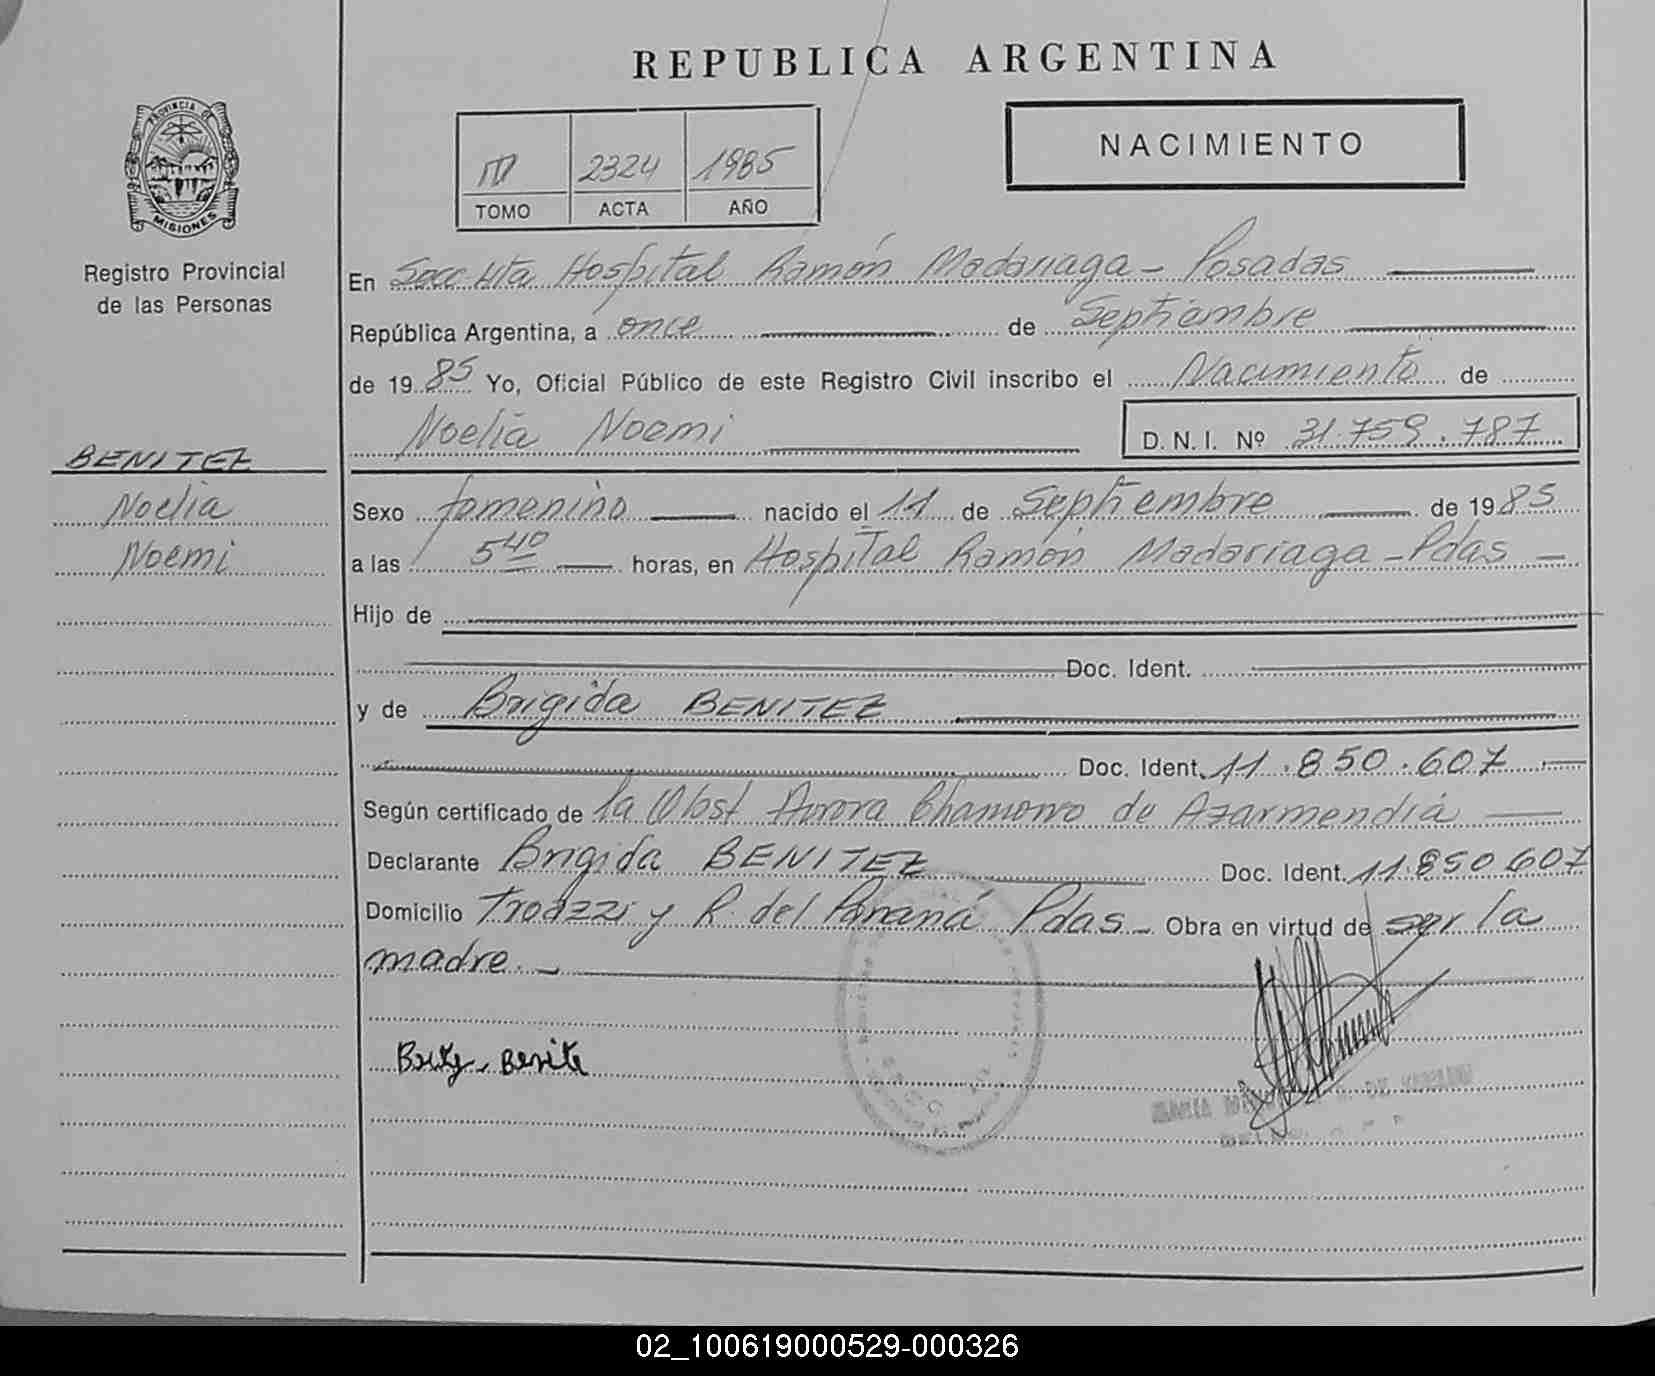 REPUBLICA ARGENTINA
PROVINCIA DE MISIONES
Registro Provincial
de las Personas
2324 1985
TOMO ACTA AÑO
NACIMIENTO
En Secc Hta Hospital Ramón Madariaga - Posadas
República Argentina, a once de Septiembre
de 1985 Yo, Oficial Público de este Registro Civil inscribo el Nacimiento de
Noelia Noemi D.N.I. Nº 31.759.787
BENITEZ
Noelia
Noemi
Sexo femenino nacido el 11 de Septiembre de 1985
a las 5 40 horas, en Hospital Ramón Madariaga - Pdas
Hijo de
Doc. Ident.
y de Brigida BENITEZ
Doc. Ident. 11.850.607
Según certificado de la Obst Aurora Chamorro de Azarmendia
Declarante Brigida BENITEZ Doc. Ident. 11.850.607
Domicilio y R. del Paraná Pdas - Obra en virtud de ser la
madre. -
Benite
MARIA DE
02_100619000529-000326